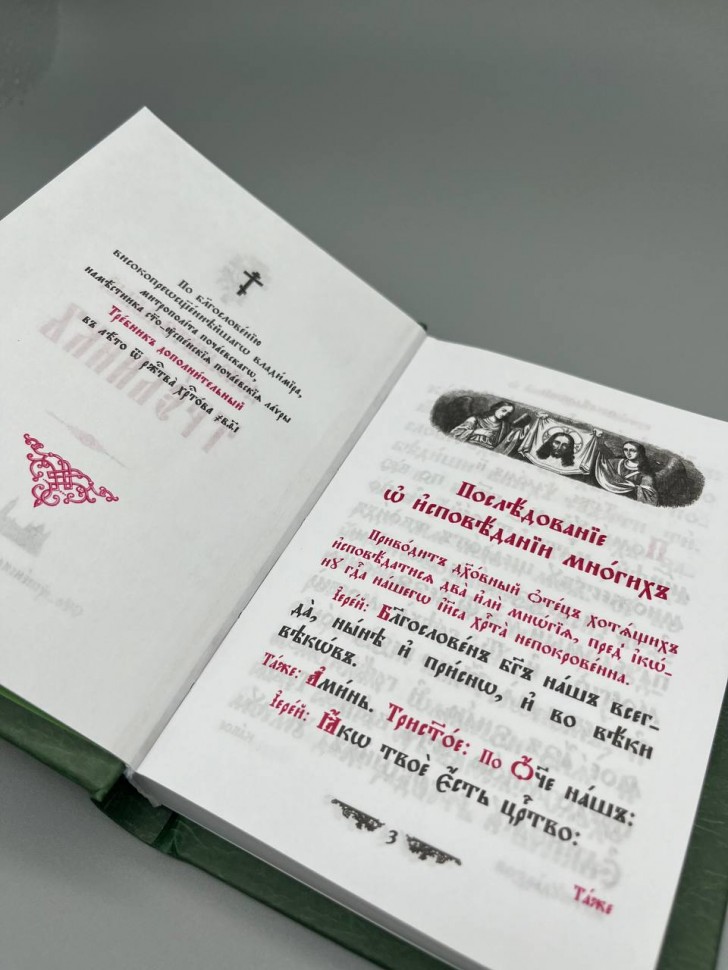 По бл҃гослове́нїю
высокопреѡсщ҃е́ннѣйшагѡ влади́міра,
митрополі́та поча́евскагѡ,
намѣ́стника ст҃о-ᲂу҆спе́нскїѧ поча́евскїѧ ла́ѵры
Тре́бникъ дополни́тельный
въ лѣ́то ѿ ржⷭ҇тва̀ хрⷭ҇то́ва
Послѣ́дованїе
ѡ҆ и҆сповѣ́данїи мно́гихъ
Приво́дитъ дꙋхо́вный ѻ҆те́цъ хотѧ́щихъ
и҆сповѣ́датисѧ два̀ и҆лѝ мнѡ́гїѧ, пред̾ і҆кѡ́-
нꙋ гдⷭ҇а на́шегѡ і҆и҃са хрⷭ҇та̀ непокрове́нна.
І҆ере́й: Бл҃гослове́нъ бг҃ъ на́шъ всег-
да̀, ны́нѣ и҆ при́снѡ, и҆ во вѣ́ки
вѣкѡ́въ.
Та́же: А҆ми́нь. Трист҃о́е: По Ѻ҆́ч҃е на́шъ:
І҆ере́й: Ꙗ҆́кѡ твоѐ є҆́сть црⷭ҇тво:
3
Та́же